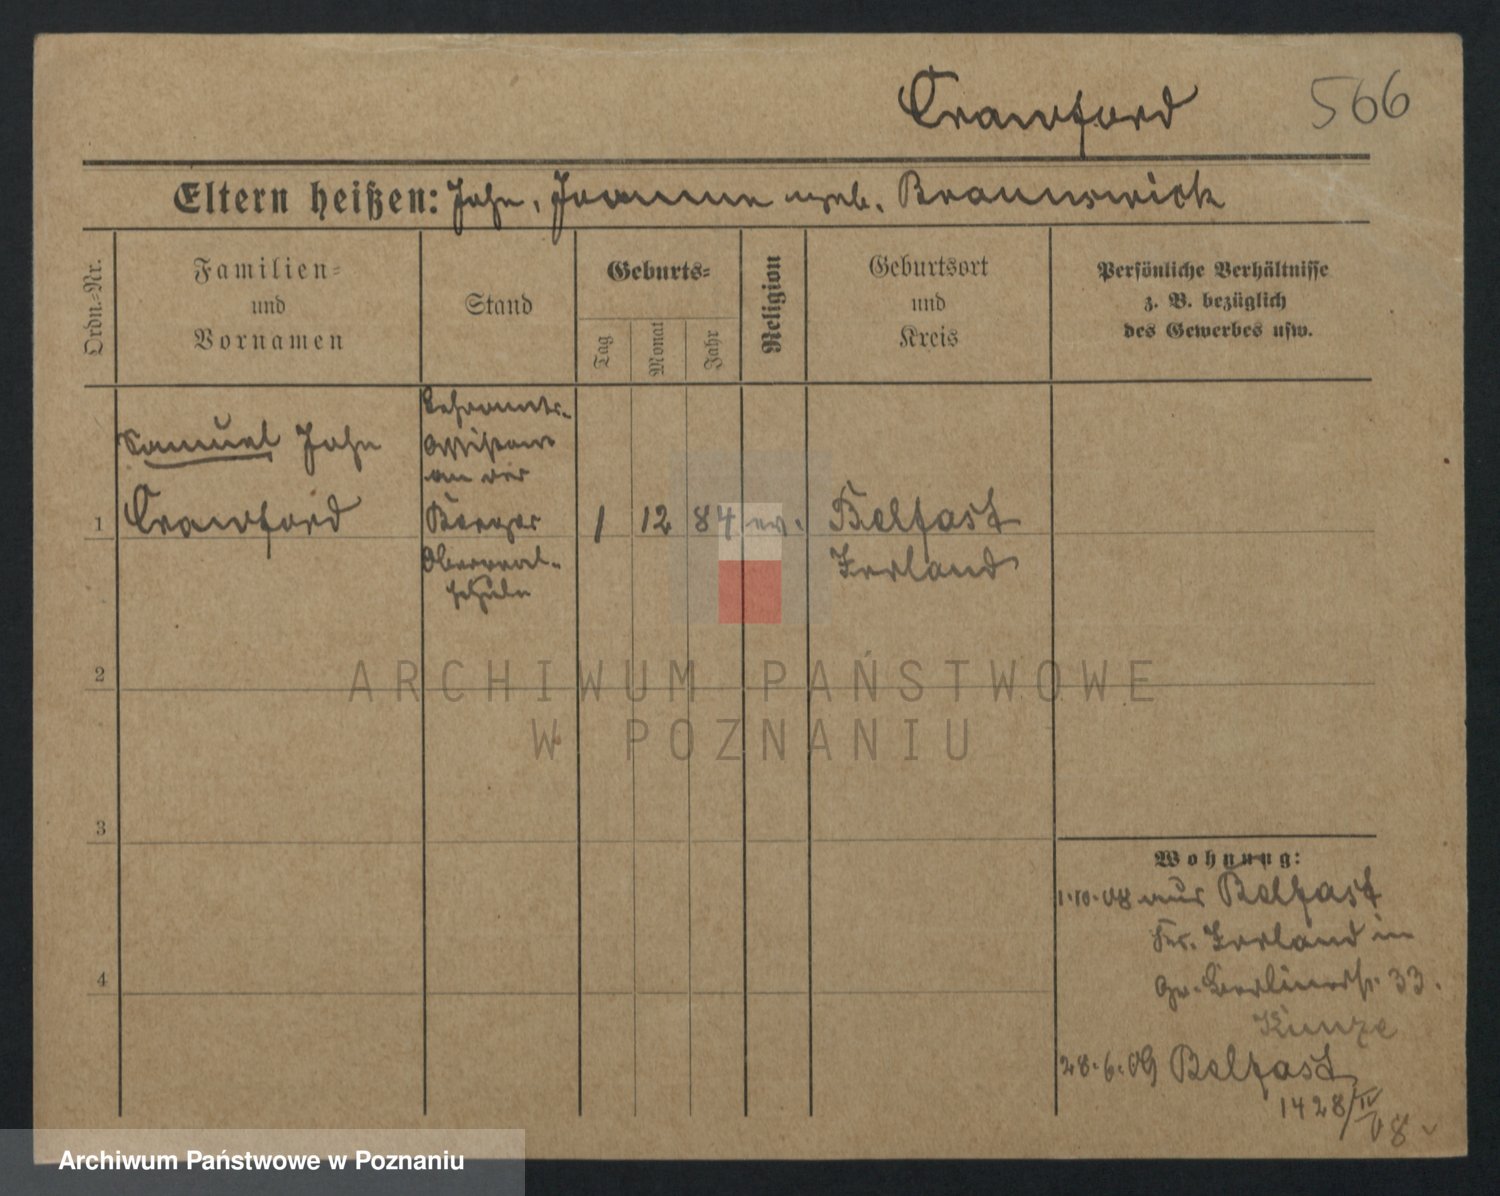 Crawford 566
Eltern heißen: John, Joanne geb. Braunswick
Ordn.-Nr.
Familien-
und
Vornamen
Stand
Geburts-
Tag
Monat
Jahr
Religion
Geburtsort
und
Kreis
Persönliche Verhältnisse
z. B. bezüglich
des Gewerbes usw.
1
Samuel John
Crawford
Lehramts-
Assistent
an der
Berger
Oberreal-
schule
1 12 84 ev.
Belfast
Irrland
2
3
4
Wohnung:
1.10.08 aus Belfast
Krs. Irrland in
Gr. Berlinerstr. 33.
Kunze
28.6.09 Belfast
1428/IV
08
ARCHIWUM PAŃSTWOWE
W POZNANIU
Archiwum Państwowe w Poznaniu